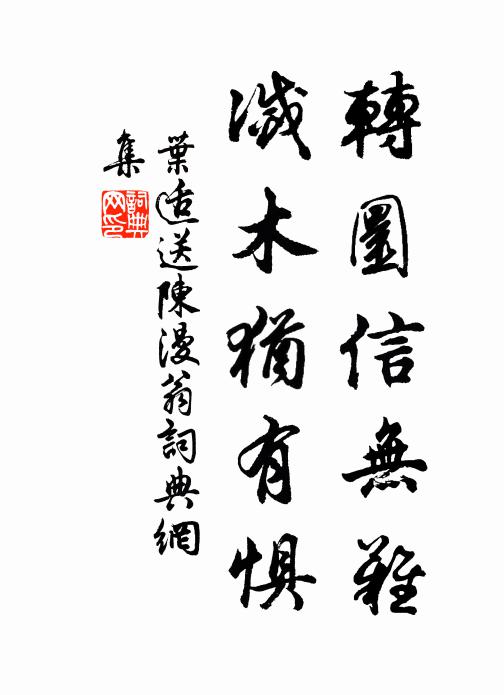 轉圜信無難
滅木猶有懼
葉适送陳漫翁詞典網
集
詞典
网印